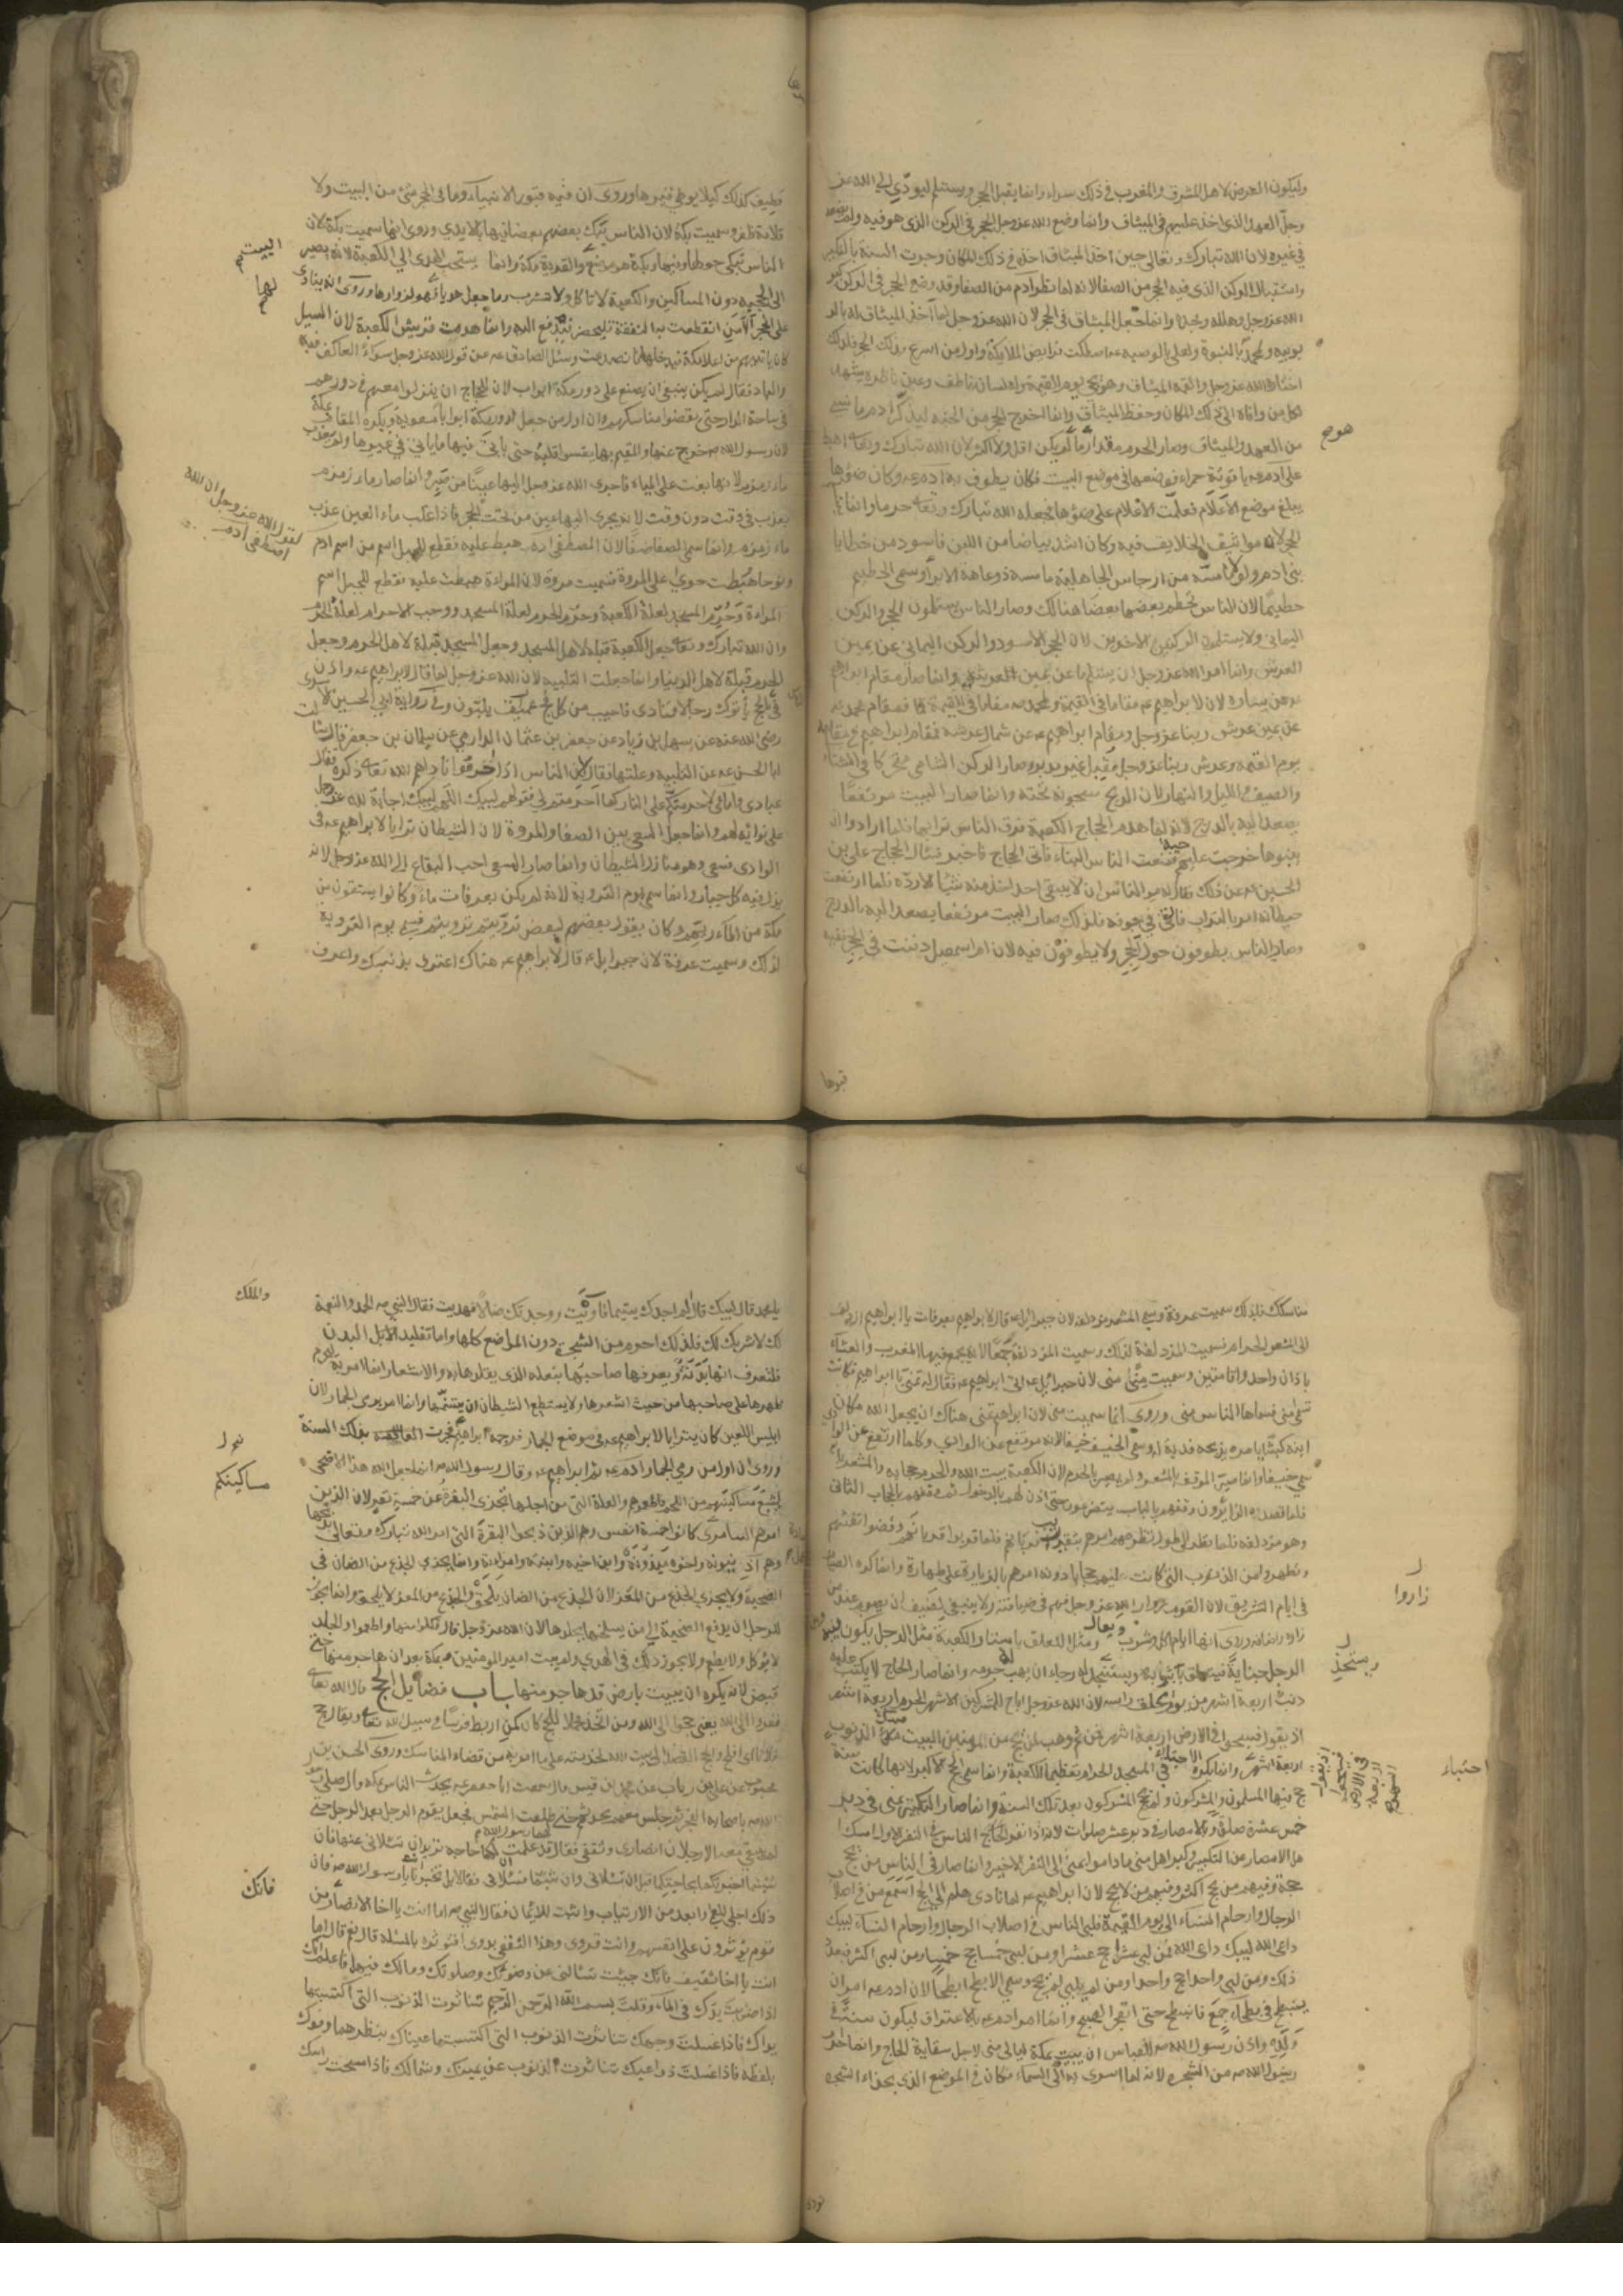 وليكون العرض لاهل المشرق والمغرب في ذلك سواء وانما يقبل الحجر ويستلم ليودي الى الله عز
وجل العهد الذى اخذ عليهم في الميثاق وانما وضع الله عز وجل الحجر في الركن الذى هو فيه ولم يضعه
في غيره لان الله تبارك وتعالى حين اخذ الميثاق اخذه في ذلك المكان وجرت السنة بالتكبير
واستقبال الركن الذى فيه الحجر من الصفا لانه لما نظر ادم من الصفا وقد وضع الحجر في الركن كبر
الله عز وجل وهلله ومجده وانما جعل الميثاق في الحجر لان الله عز وجل لما اخذ الميثاق له بالر
بوبيه ولمحمد بالنبوة ولعلى بالوصيه اصطكت فرايص الملايكة واول من اسرع الحجر فلذلك
اختاره الله عز وجل والقمه الميثاق وهو يجئ يوم القيمة وله لسان ناطق وعين ناظره يشهد
لكل من وافاه الى ذلك المكان وحفظ الميثاق وانما اخرج الحجر من الجنه ليذكر ادم ما نسي
من العهد والميثاق وصار الحرم مقدار ما لم يكن اقل ولا اكثر لان الله تبارك اهبط
على ادم ياقوتة حمراء فوضعها في موضع البيت فكان يطوف بها ادم وكان ضوؤها
يبلغ موضع الاعلام فعلمت الاعلام على ضوئها فجعله الله تبارك حرما وانما
مواثيق الخلايق فيه وكان اشد بياضا من اللبن فاسود من خطايا
بنى ادم ولولا ما مسه من ارجاس الجاهلية ما مسه ذو عاهة الا برأ وسمى الحطيم
حطيما لان الناس يحطم بعضهم بعضا هنالك وصار الناس يستلمون الحجر والركن
اليمانى ولا يستلمون الركنين الاخرين لان الحجر الاسود والركن اليمانى عن يمين
العرش وانما امر الله عز وجل ان يستلم ما عن يمين العرش وانما صار مقام ابراهيم
عن يساره لان لابراهيم مقاما في القيمة ولمحمد مقاما في القيمة فمقام محمد
عن يمين عرش ربنا عز وجل ومقام ابراهيم عن شمال عرشه فمقام ابراهيم في مقامه
يوم القيمة وعرش ربنا عز وجل مقبل غير مدبر وصار الركن الشامى متحركا في الشتاء
والصيف والليل والنهار لان الريح مسجونة تحته وانما صار البيت مرتفعا
يصعد اليه بالدرج لانه لما هدم الحجاج الكعبة فرق الناس ترابها فلما ارادوا ان
يبنوها خرجت عليهم حية فمنعت الناس البناء فاتى الحجاج فاخبر فسال الحجاج على بن
الحسين عن ذلك فقال له مر الناس ان لا يبقى احد اخذ منه شيئا الا رده فلما ارتفعت
حيطانه امر بالتراب فالقى في جوفه فلذلك صار البيت مرتفعا يصعد اليه بالدرج
وصار الناس يطوفون حول الحجر ولا يطوفون فيه لان ام اسمعيل دفنت في الحجر ففيه
قبرها
فطيف كذلك كيلا يوطى قبرها وروى ان فيه قبور الانبياء وما فى الحجر شئ من البيت ولا
قلامة ظفر وسميت بكة لان الناس يبك بعضهم بعضا فيها بالايدي وروى انها سميت بكة لان
الناس تبكى حولها وفيها وبكة هو موضع والقرية مكة وانما يستحب الهدى الى الكعبة لانه يصير
البيت
لهما
الى الحجبه دون المساكين والكعبة لا تاكل ولا تشرب وما جعل هديا لها فهو لزوارها وروى انه ينادى
على الحجر الا من انقطعت به النفقة فليحضر فيدفع اليه وانما هدمت قريش الكعبة لان السيل
كان ياتيهم من اعلا مكة فيدخلها فانصدعت وسئل الصادق عن قول الله عز وجل سواء العاكف فيه
والباد فقال لم يكن ينبغى ان يصنع على دور مكة ابواب لان للحجاج ان ينزلوا معهم في دورهم
في ساحة الدار حتى يقضوا مناسكهم وان اول من جعل لدور مكة ابوابا معوية ويكره المقام بمكة
لان رسول الله خرج عنها والمقيم بها يقسو قلبه حتى ياتى فيها ما ياتى في غيرها ولم يعذب
ماء زمزم لانها بغت على المياه فاجرى الله عز وجل اليها عينا من صبر وانما صار ماء زمزم
يعذب في وقت دون وقت لانه يجرى اليها عين من تحت الحجر فاذا غلب ماء العين عذب
لقول الله عز وجل ان الله
اصطفى آدم
ماء زمزم وانما سمى الصفا صفا لان المصطفى ادم هبط عليه فقطع للجبل اسم من اسم ادم
ونوحا وهبطت حوى على المروة فسميت مروة لان المراة هبطت عليه فقطع للجبل اسم
المراة وحرم المسجد لعلة الكعبة وحرم الحرم لعلة المسجد ووجب الاحرام لعلة الحرم
وان الله تبارك جعل الكعبة قبلة لاهل المسجد وجعل المسجد قبلة لاهل الحرم وجعل
الحرم قبلة لاهل الدنيا وانما جعلت التلبيه لان الله عز وجل لما قال لابراهيم واذن
في بالحج ياتوك رجالا فنادى فاجيب من كل فج عميق يلبون وفى رواية ابى الحسين الاسدى
رضى الله عنه عن سهل بن زياد عن جعفر بن عثمان الدارمي عن سليمان بن جعفر قال سالت
ابا الحسن عن التلبيه وعلتها فقال ان الناس اذا احرموا ناداهم الله تعالى ذكره فقال
عبادى وامائى لاحرمنكم على النار كما احرمتم لى فقولهم لبيك اللهم لبيك اجابة لله عز وجل
على ندائه لهم وانما جعل السعى بين الصفا والمروة لان الشيطان ترايا لابراهيم في
الوادى فسعى وهو منازل الشيطان وانما صار المسعى احب البقاع الى الله عز وجل لانه
يذل فيه كل جبار وانما سمى يوم التروية لانه لم يكن بعرفات ماء وكانوا يستقون من
مكة من الماء ريهم وكان يقول بعضهم لبعض ترويتم ترويتم فسمى يوم التروية
لذلك وسميت عرفة لان جبرايل قال لابراهيم هناك اعترف بذنبك واعرف
مناسكك فلذلك سميت عرفة وسمى المشعر مزدلفه لان جبرايل قال لابراهيم بعرفات يا ابراهيم ازدلف
الى المشعر الحرام فسميت المزدلفة لذلك وسميت المزدلفة جمعا لانه يجمع فيها المغرب والعشاء
باذان واحد واقامتين وسميت منى منى لان جبرائيل اتى ابراهيم فقال له تمن يا ابراهيم فكانت
تسمى منى فسماها الناس منى وروى انما سميت منى لان ابراهيم تمنى هناك ان يجعل الله مكان
ابنه كبشا يامره بذبحه فدية له وسمى الخيف خيفا لانه مرتفع عن الوادى وكلما ارتفع عن الوادى
سمي خيفا وانما صير الموقف بالمشعر ولم يصر بالحرم لان الكعبة بيت الله والحرم حجابه والمشعر بابه
فلما قصده الزائرون وقفهم بالباب يتضرعون حتى اذن لهم بالدخول ثم وقفهم بالحجاب الثانى
وهو مزدلفه فلما نظر الى طول تضرعهم امرهم بتقريب قربانهم فلما قربوا قربانهم وقضوا تفثهم
وتطهروا من الذنوب التى كانت لهم حجابا دونه امرهم بالزيارة على طهارة وانما كره الصيام
زاروا
في ايام التشريق لان القوم زوار الله عز وجل فهم في ضيافته ولا ينبغى لضيف ان يصوم عند من
زاره واضافه وروى انها ايام اكل وشرب وبعال ومثل التعلق باستار الكعبة مثل الرجل يكون بينه وبين
الرجل جناية فيتعلق بثوبه ويستخذى له رجاء ان يهب له جرمه وانما صار الحاج لا يكتب عليه
ويستخذى
ذنب اربعة اشهر من يوم يحلق راسه لان الله عز وجل اباح للمشركين الاشهر الحرم اربعة اشهر
اذ يقول فسيحوا في الارض اربعة اشهر فمن ثم وهب لمن يحج من المومنين البيت مسك الذنوب
اربعة اشهر وانما يكره الاحتباء في المسجد الحرام تعظيما للكعبة وانما سمى الحج الاكبر لانها كانت سنة
احتباء
حج فيها المسلمون والمشركون ولم يحج المشركون بعد تلك السنة وانما صار التكبير بمنى في دبر
خمس عشرة صلوة وبالامصار في دبر عشر صلوات لانه اذا نفر الناس في النفر الاول امسك
اهل الامصار عن التكبير وكبر اهل منى ما داموا بمنى الى النفر الاخير وانما صار في الناس من يحج
حجة وفيهم من يحج اكثر وفيهم من لا يحج لان ابراهيم لما نادى هلم الى الحج اسمع من في اصلاب
الرجال وارحام النساء الى يوم القيمة فلبى الناس في اصلاب الرجال وارحام النساء لبيك
داعى الله لبيك داعى الله فمن لبى عشرا حج عشرا ومن لبى خمسا حج خمسا ومن لبى اكثر فبعدد
ذلك ومن لبى واحدا حج واحدا ومن لم يلب لم يحج وسمى الابطح ابطحا لان ادم امر ان
ينبطح في بطحاء جمع فانبطح حتى انفجر الصبح وانما امر ادم بالاعتراف ليكون سنة في
ولده واذن رسول الله للعباس ان يبيت بمكة ليالى منى لاجل سقاية الحاج وانما احرم
رسول الله من الشجره لانه لما اسرى به الى السماء فكان في الموضع الذى بحذاء الشجره
نودى
يا محمد قال لبيك قال الم اجدك يتيما فاويت ووجدتك ضالا فهديت فقال النبى الحمد والنعمة
والملك
لك لا شريك لك فلذلك احرم من الشجرة دون المواضع كلها واما تقليد الابل البدن
فلتعرف انها بدنة ويعرفها صاحبها بنعله الذى يقلدها به والاشعار انما امر به ليحرم
ظهرها على صاحبها من حيث اشعرها ولا يستطيع الشيطان ان يتسنمها وانما امر برمى الجمار لان
ابليس اللعين كان يترايا لابراهيم في موضع الجمار فرجمه ابراهيم فجرت بذلك السنة
وروى ان اول من رمى الجمار ادم ثم ابراهيم وقال رسول الله انما جعل الله هذا الاضحى
لتشبع مساكينهم من اللحم فاطعموهم والعلة التى من اجلها تجزى البقرة عن خمسة نفر لان الذين
مساكينكم
امرهم السامرى كانوا خمسة انفس وهم الذين ذبحوا البقرة التى امر الله تبارك وتعالى بذبحها
وهم اذينونه واخوه ميذونة وابن اخيه وابنته وامراته وانما يجزى الجذع من الضان في
الضحية ولا يجزى الجذع من المعز لان الجذع من الضان يلقح والجذع من المعز لا يلقح وانما يجوز
للرجل ان يدفع الضحية الى من يسلخها بجلدها لان الله عز وجل قال فكلوا منها واطعموا والجلد
لا يوكل ولا يطعم ولا يجوز ذلك في الهدى ولم يبت امير المومنين بمكة بعد ان هاجر منها حتى
قبض لانه يكره ان يبيت بارض قد هاجر منها باب فضايل الحج قال الله تعالى
ففروا الى الله يعنى حجوا الى الله ومن اتخذ محملا للحج كان كمن ارتبط فرسا في سبيل الله تعالى ويقال حج
فلان اى افلح والحج القصد الى بيت الله لخدمته على ما امر به من قضاء المناسك وروى الحسن بن
محبوب عن على بن رئاب عن محمد بن قيس قال سمعت ابا جعفر يحدث الناس بمكة قال صلى رسول
الله باصحابه الفجر ثم جلس معهم يحدثهم حتى طلعت الشمس فجعل يقوم الرجل بعد الرجل حتى
لم يبق معه الا رجلان انصارى وثقفى فقال لهما رسول الله قد علمت ان لكما حاجه تريدان تسئلانى عنها فان
شئتما اخبرتكما بحاجتكما قبل ان تسئلانى وان شئتما فسئلانى فقالا بل تخبرنا يا رسول الله فان
فانك
ذلك اجلى للعمى وابعد من الارتياب واثبت للايمان فقال النبى اما انت يا اخا الانصار فمن
قوم يوثرون على انفسهم وانت قروى وهذا الثقفى بدوى افتوثره بالمسئلة قال نعم قال اما
انت يا اخا ثقيف فانك جئت تسئلنى عن وضوئك وصلوتك ومالك فيهما فاعلم انك
اذا ضربت يدك في الماء وقلت بسم الله الرحمن الرحيم تناثرت الذنوب التى اكتسبتها
يداك فاذا غسلت وجهك تناثرت الذنوب التى اكتسبتها عيناك بنظرهما وفوك
بلفظه فاذا غسلت ذراعيك تناثرت الذنوب عن يمينك وشمالك فاذا مسحت راسك